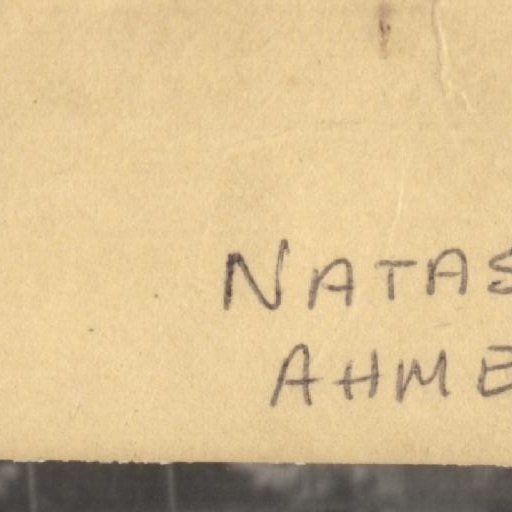 NATAS
AHME